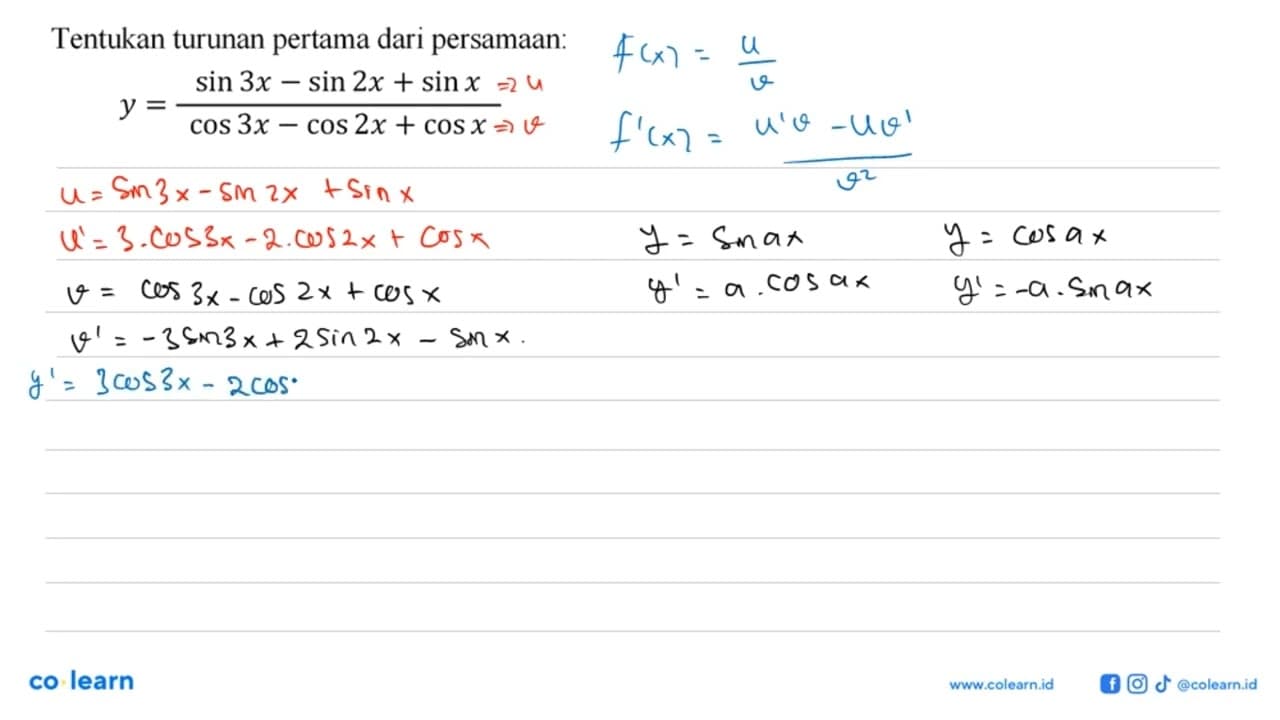 Tentukan turunan pertama dari persamaan:
y = (sin 3x − sin 2x + sin x)/(cos 3x − cos 2x + cos x)
⇒ u
⇒ v
f(x) = u/v
f'(x) = (u'v − uv')/v²
u = sin 3x − sin 2x + sin x
u' = 3.cos 3x − 2.cos 2x + cos x
v = cos 3x − cos 2x + cos x
v' = −3 sin 3x + 2 sin 2x − sin x.
y = sin ax
y' = a.cos ax
y = cos ax
y' = −a.sin ax
y' = 3 cos 3x − 2 cos
co learn
www.colearn.id
@colearn.id